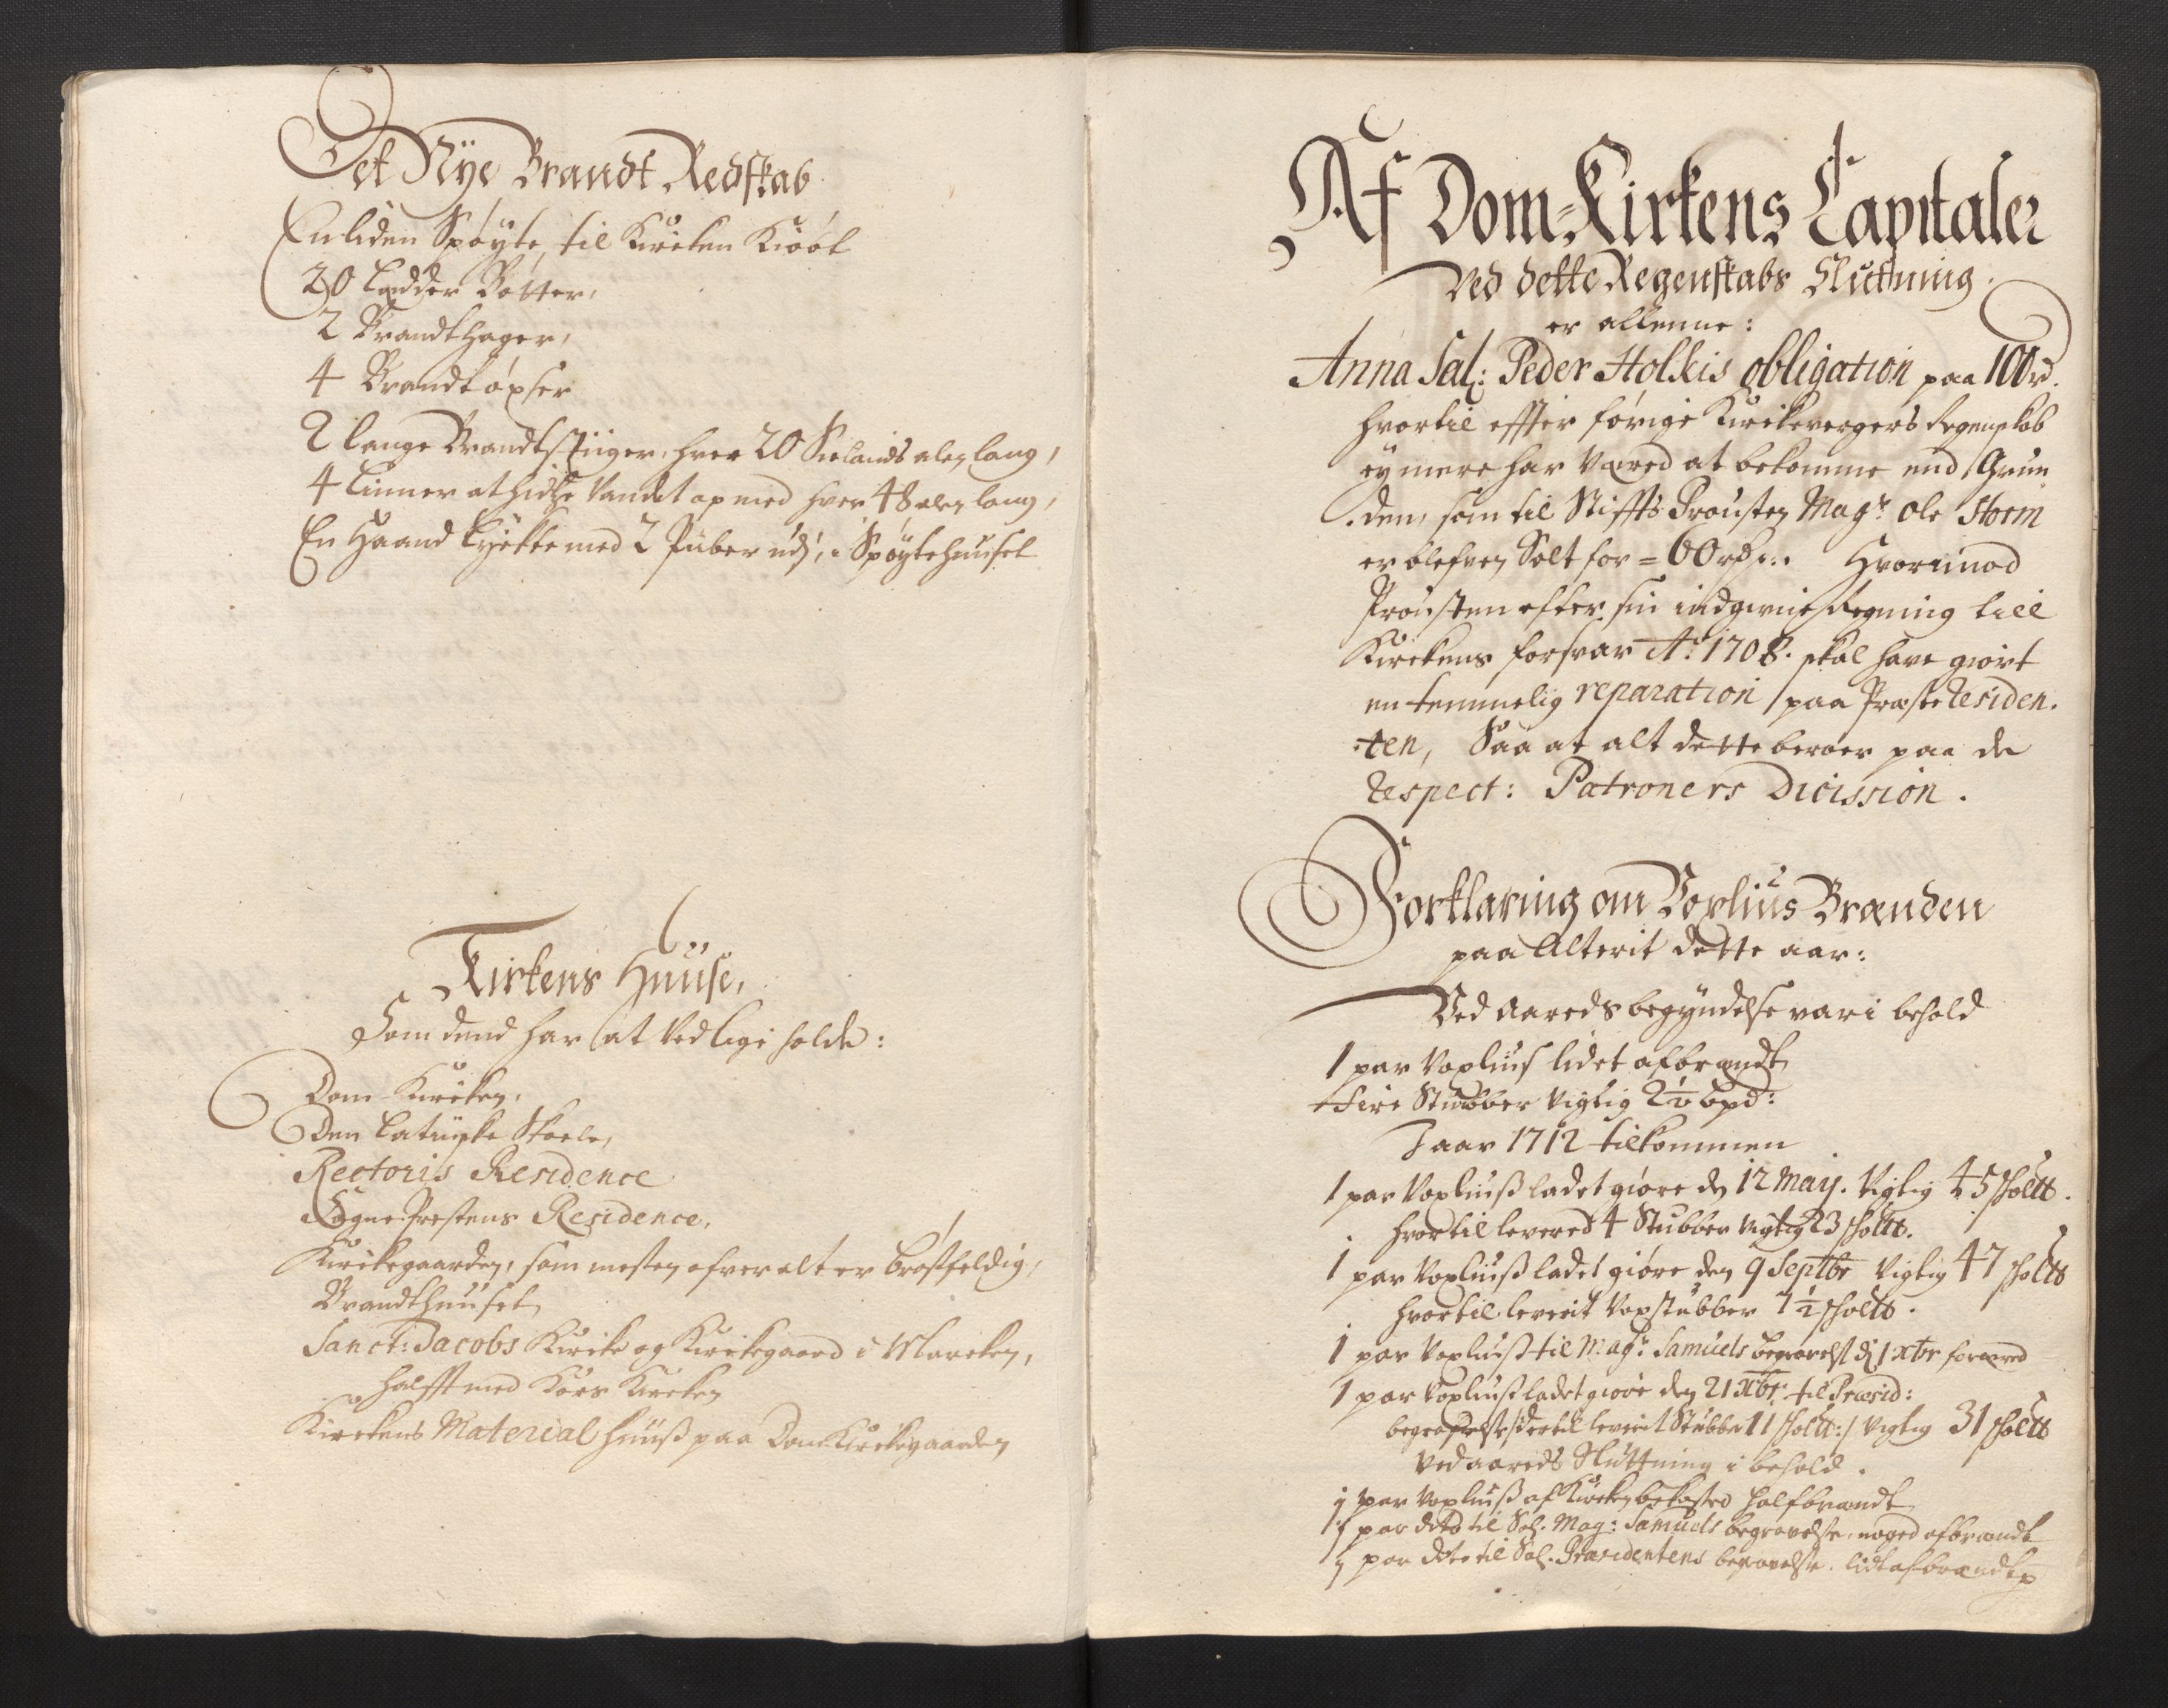 Det Nye Brandt Redskab
En liden Spøyte, til Kircken Kiøbt
20 Lædder Bøtter,
2 Brandthager,
4 Brandt øxser
2 lange Brandtstiiger, hver 20 Sielands alen lang,
4 Linner at hidse Vandet op med hver 48 alen lang,
En Haand Lyckte med 2 Piiber udj, i Spøytehuuset
Kirkens Huuse,
Som dend har at Vedlige holde:
Dom Kircken,
Den Latinske Skoele,
Rectoris Residence
Sogne Prestens Residence,
Kirckegaarden, som mesten ofver alt er brøstfeldig,
Brandthuuset
Sanct: Jacobs Kircke og Kirckegaard i Marcken,
halfft med Kors Kircken
Kirckens Material huuß paa Dom Kirckegaarden
Af Dom-Kirkens Capitaler
Ved dette Regenskabs Sluttning
er allenne:
Anna Sal: Peder Holkis obligation paa 100 rd.
hvortil effter forrige Kirckevergers Regenskab
ey mere har Væred at bekomme end Grun
den, som til Stiffts Prousten Mag.r Ole Storm
er blefven Solt for = 60 rd... Hvorimod
Prousten efter sin indgivne Regning till
Kirckens forsvar A.o 1708. skal have giort
en temmelig reparation paa Præste Residen.
ten, Saa at alt dette beroer paa de
Respect: Patroners Dicission.
Forklaring om Voxlius Brænden
paa Alterit dette aar:
Ved Aareds begyndelse var i behold
1 par Voxlius lidet afbrændt
Fire Stubber Vigtig 2½ bpd:
I aar 1712 tilkommen
1 par Voxliuß ladet giøre den 12 Maij. Vigtig 45 skollb.
hvortil levered 4 Stubber Vigtig 23 skollb.
1 par Voxliuß ladet giøre den 9 Septbr Vigtig 47 skollb
hvortil leverit Voxstubber 7½ skollb.
1 par Voxliuß til Mag.r Samuels begravelse d 1 xbr foræred
1 par Voxliuß ladet giøre den 21 Xbr. til Præsid:
begrafvelse/: dertil leverit Stubber 11 skollb:/ Vigtig 31 skollb
Ved aareds Sluttning i behold.
1 par Voxliuß af Kircken bekosted halfbrændt
1 par dito til Sal. Mag: Samuels begravelse, noged afbrændt
1 par dito til Sal. Præsidentens begravelse. lidt afbrændt